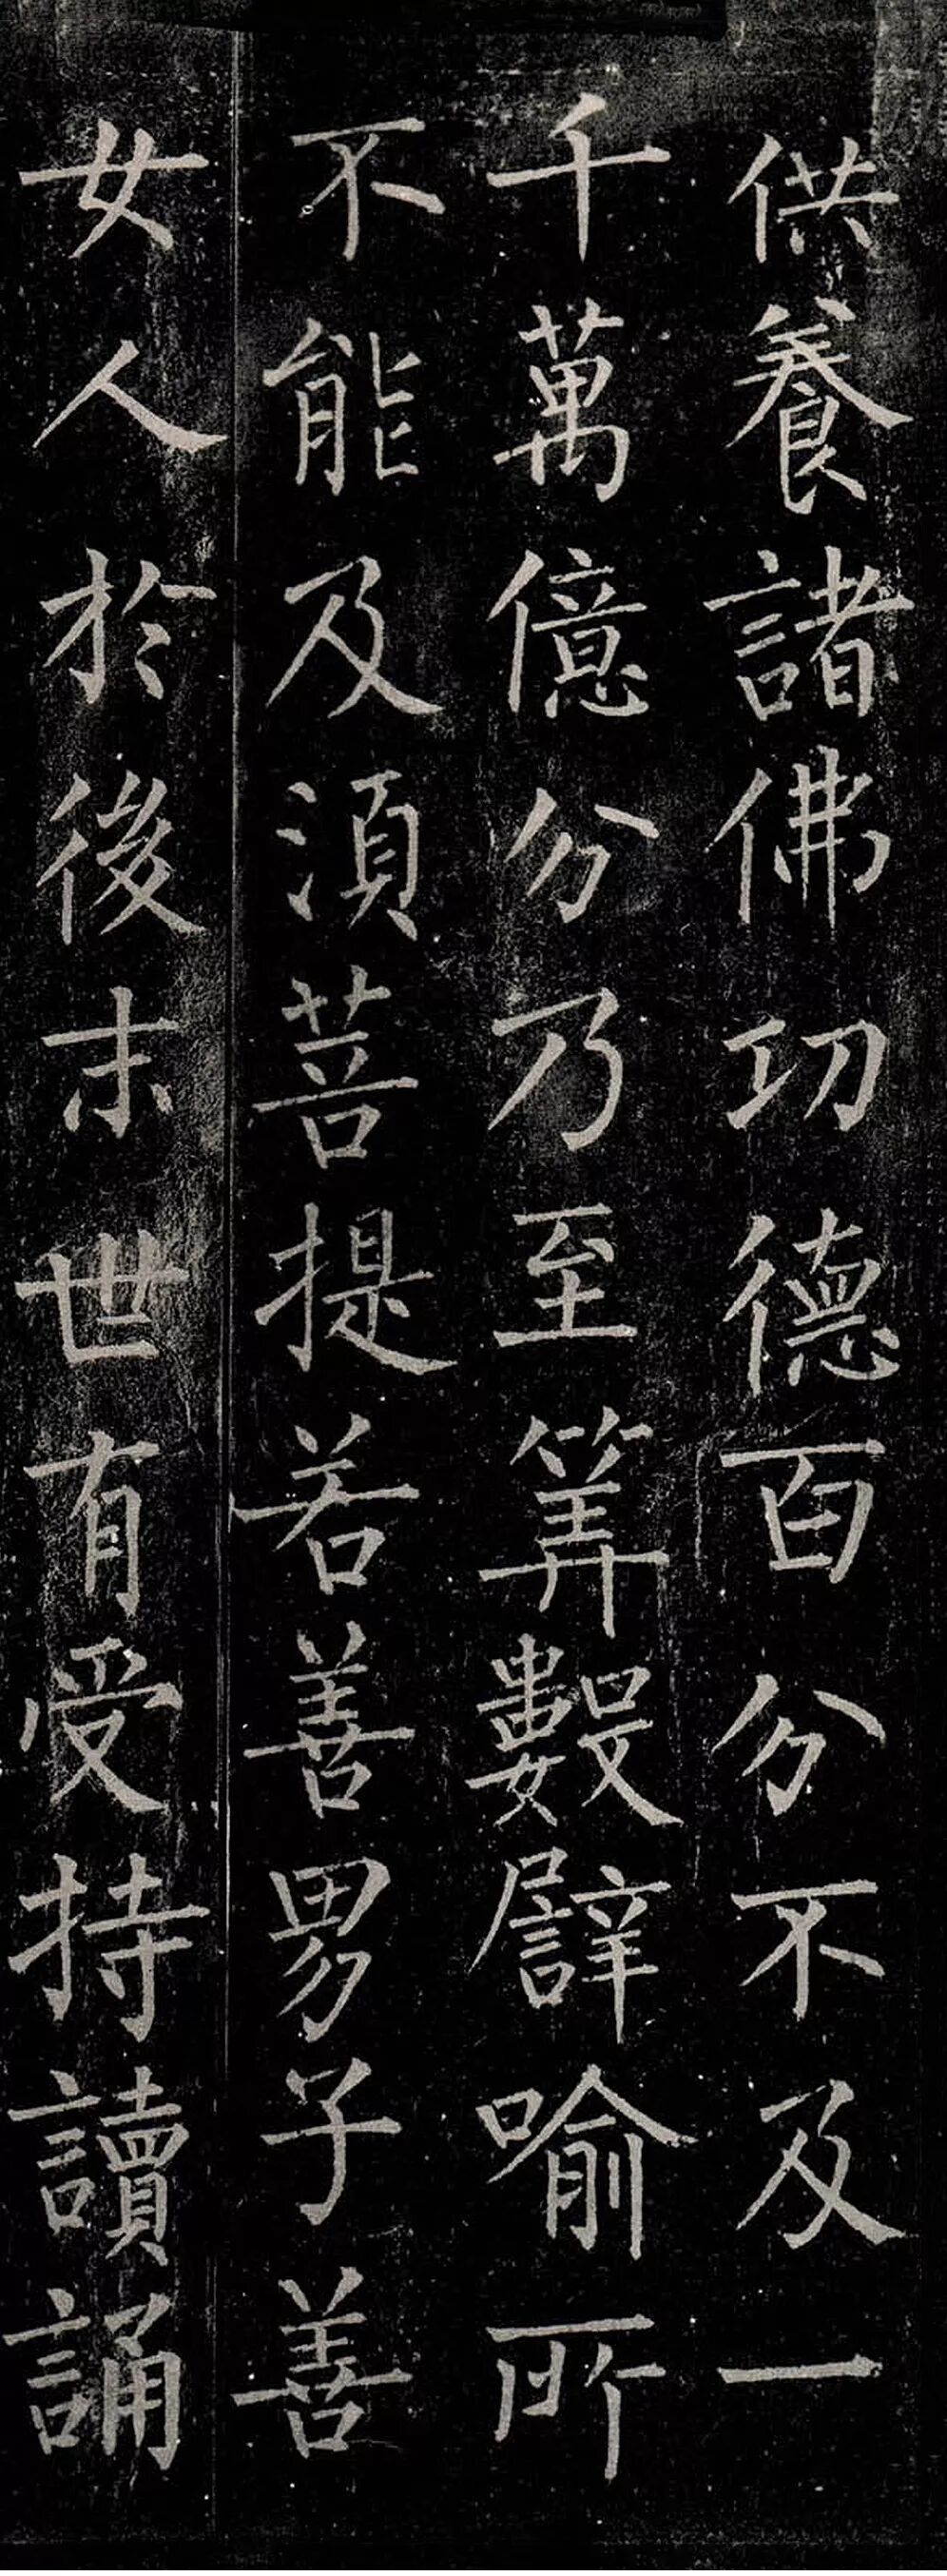 供養諸佛功德百分不及一
千萬億分乃至筭數譬喻所
不能及須菩提若善男子善
女人於後末世有受持讀誦